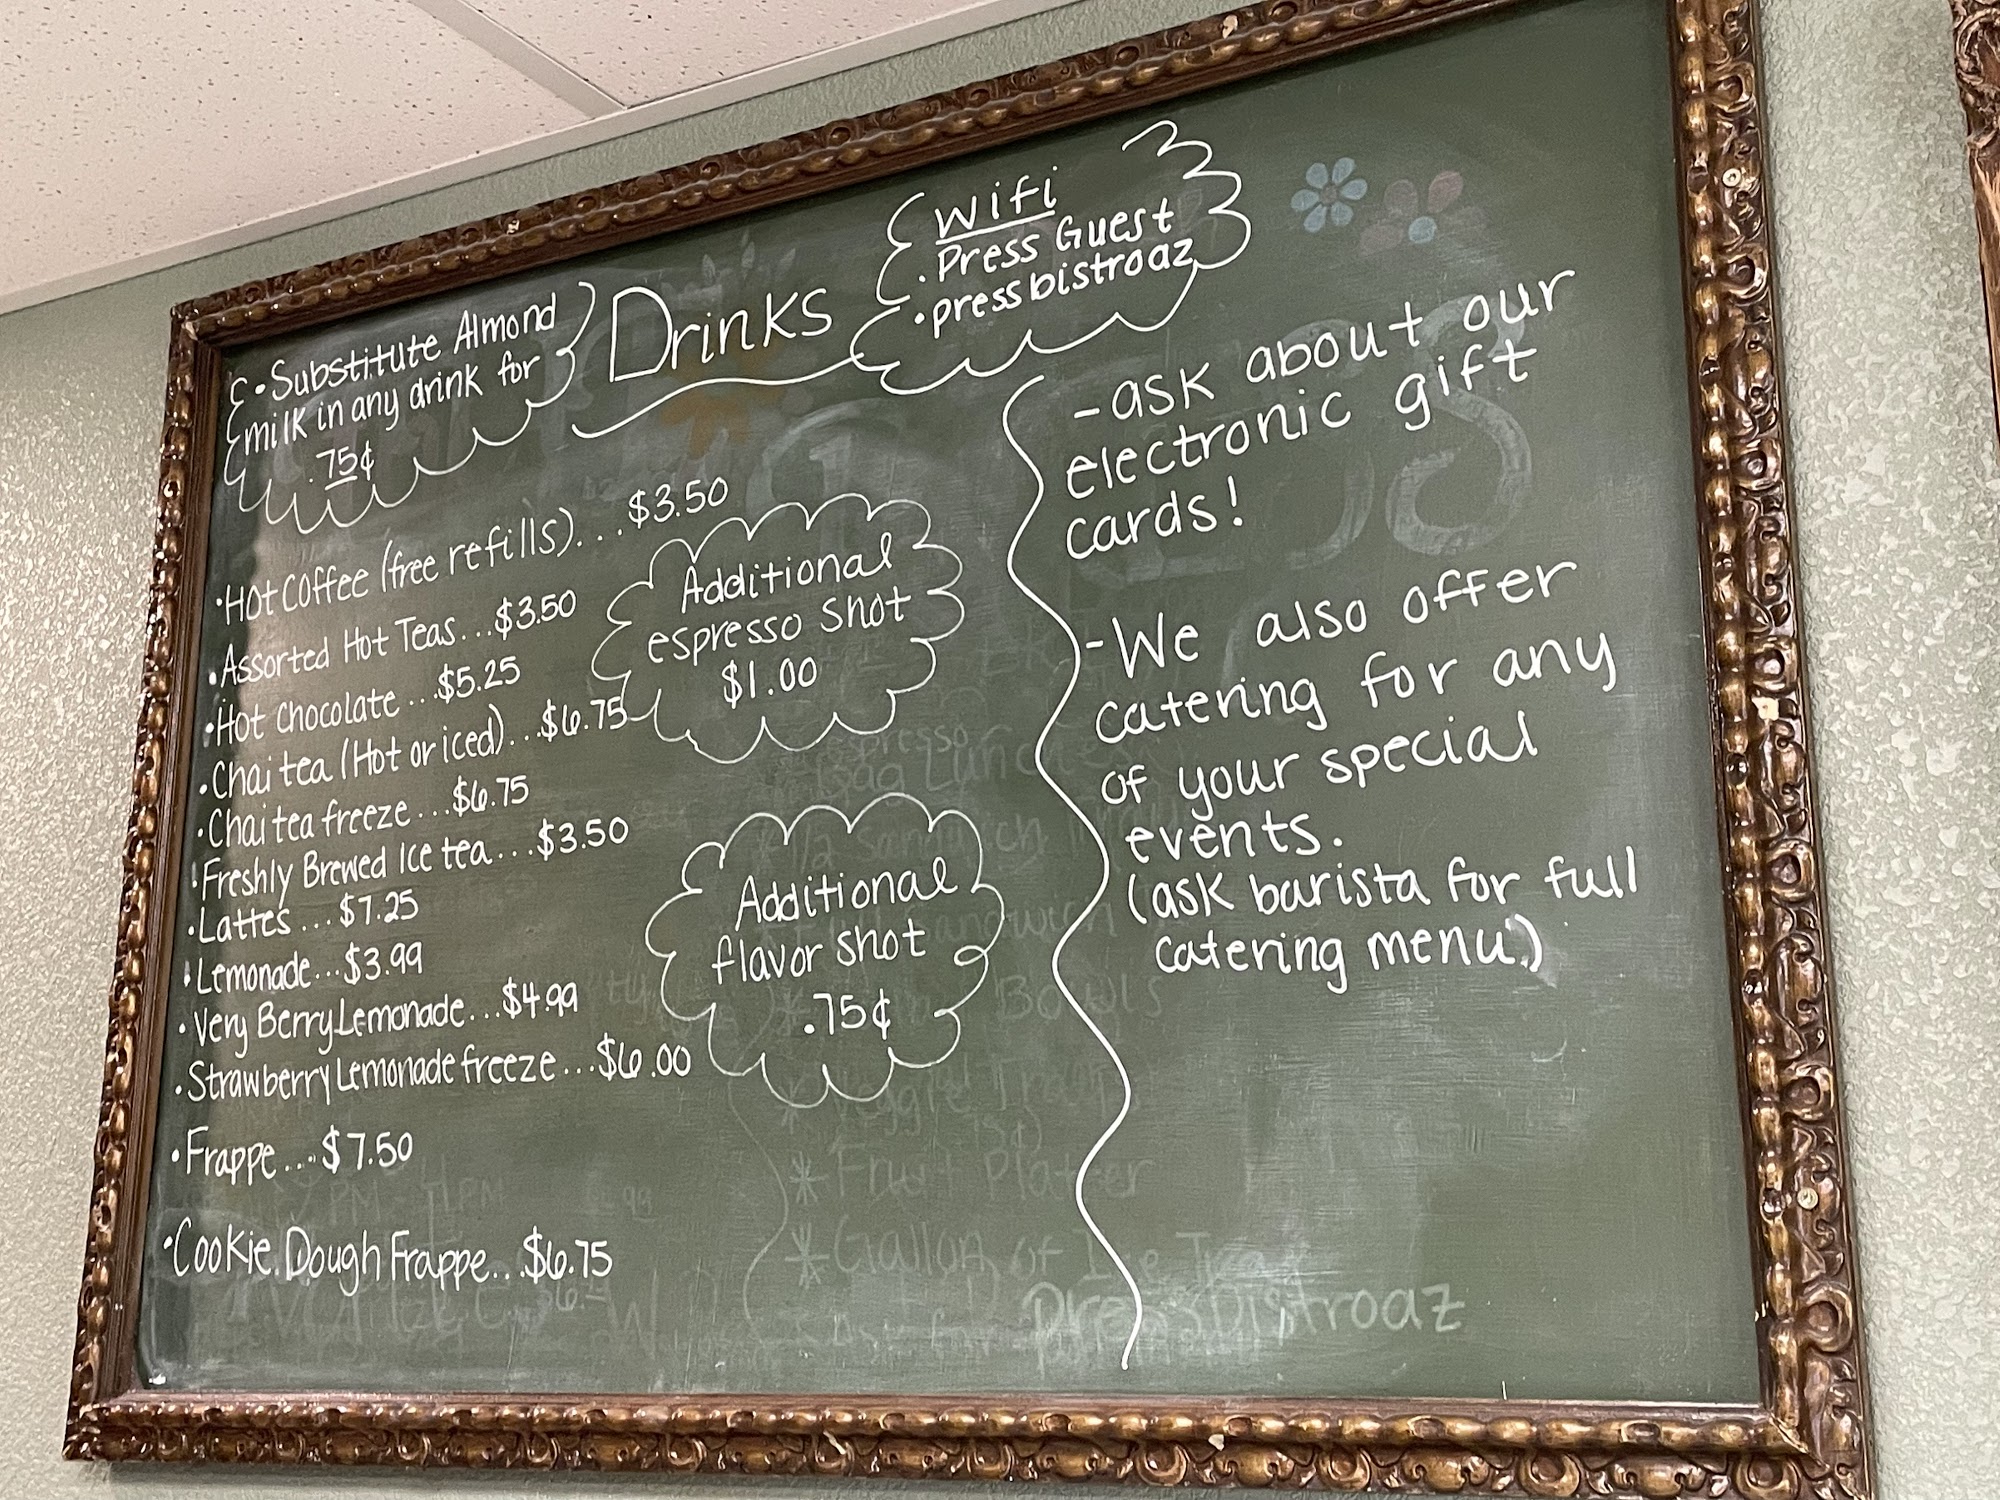 • Substitute Almond
milk in any drink for
.75¢
Drinks
Wifi
• Press Guest
• pressbistroaz
• Hot Coffee (free refills)...$3.50
• Assorted Hot Teas...$3.50
• Hot Chocolate...$5.25
• Chai tea (Hot or iced)...$6.75
• Chai tea freeze...$6.75
• Freshly Brewed Ice tea...$3.50
• Lattes...$7.25
• Lemonade...$3.99
• Very Berry Lemonade...$4.99
• Strawberry Lemonade freeze...$6.00
• Frappe...$7.50
• Cookie Dough Frappe...$6.75
Additional
espresso shot
$1.00
Additional
flavor shot
.75¢
- ask about our
electronic gift
cards!
- We also offer
catering for any
of your special
events.
(ask barista for full
catering menu.)
* Fruit Platter
* Gallon of Ice Tea
pressbistroaz